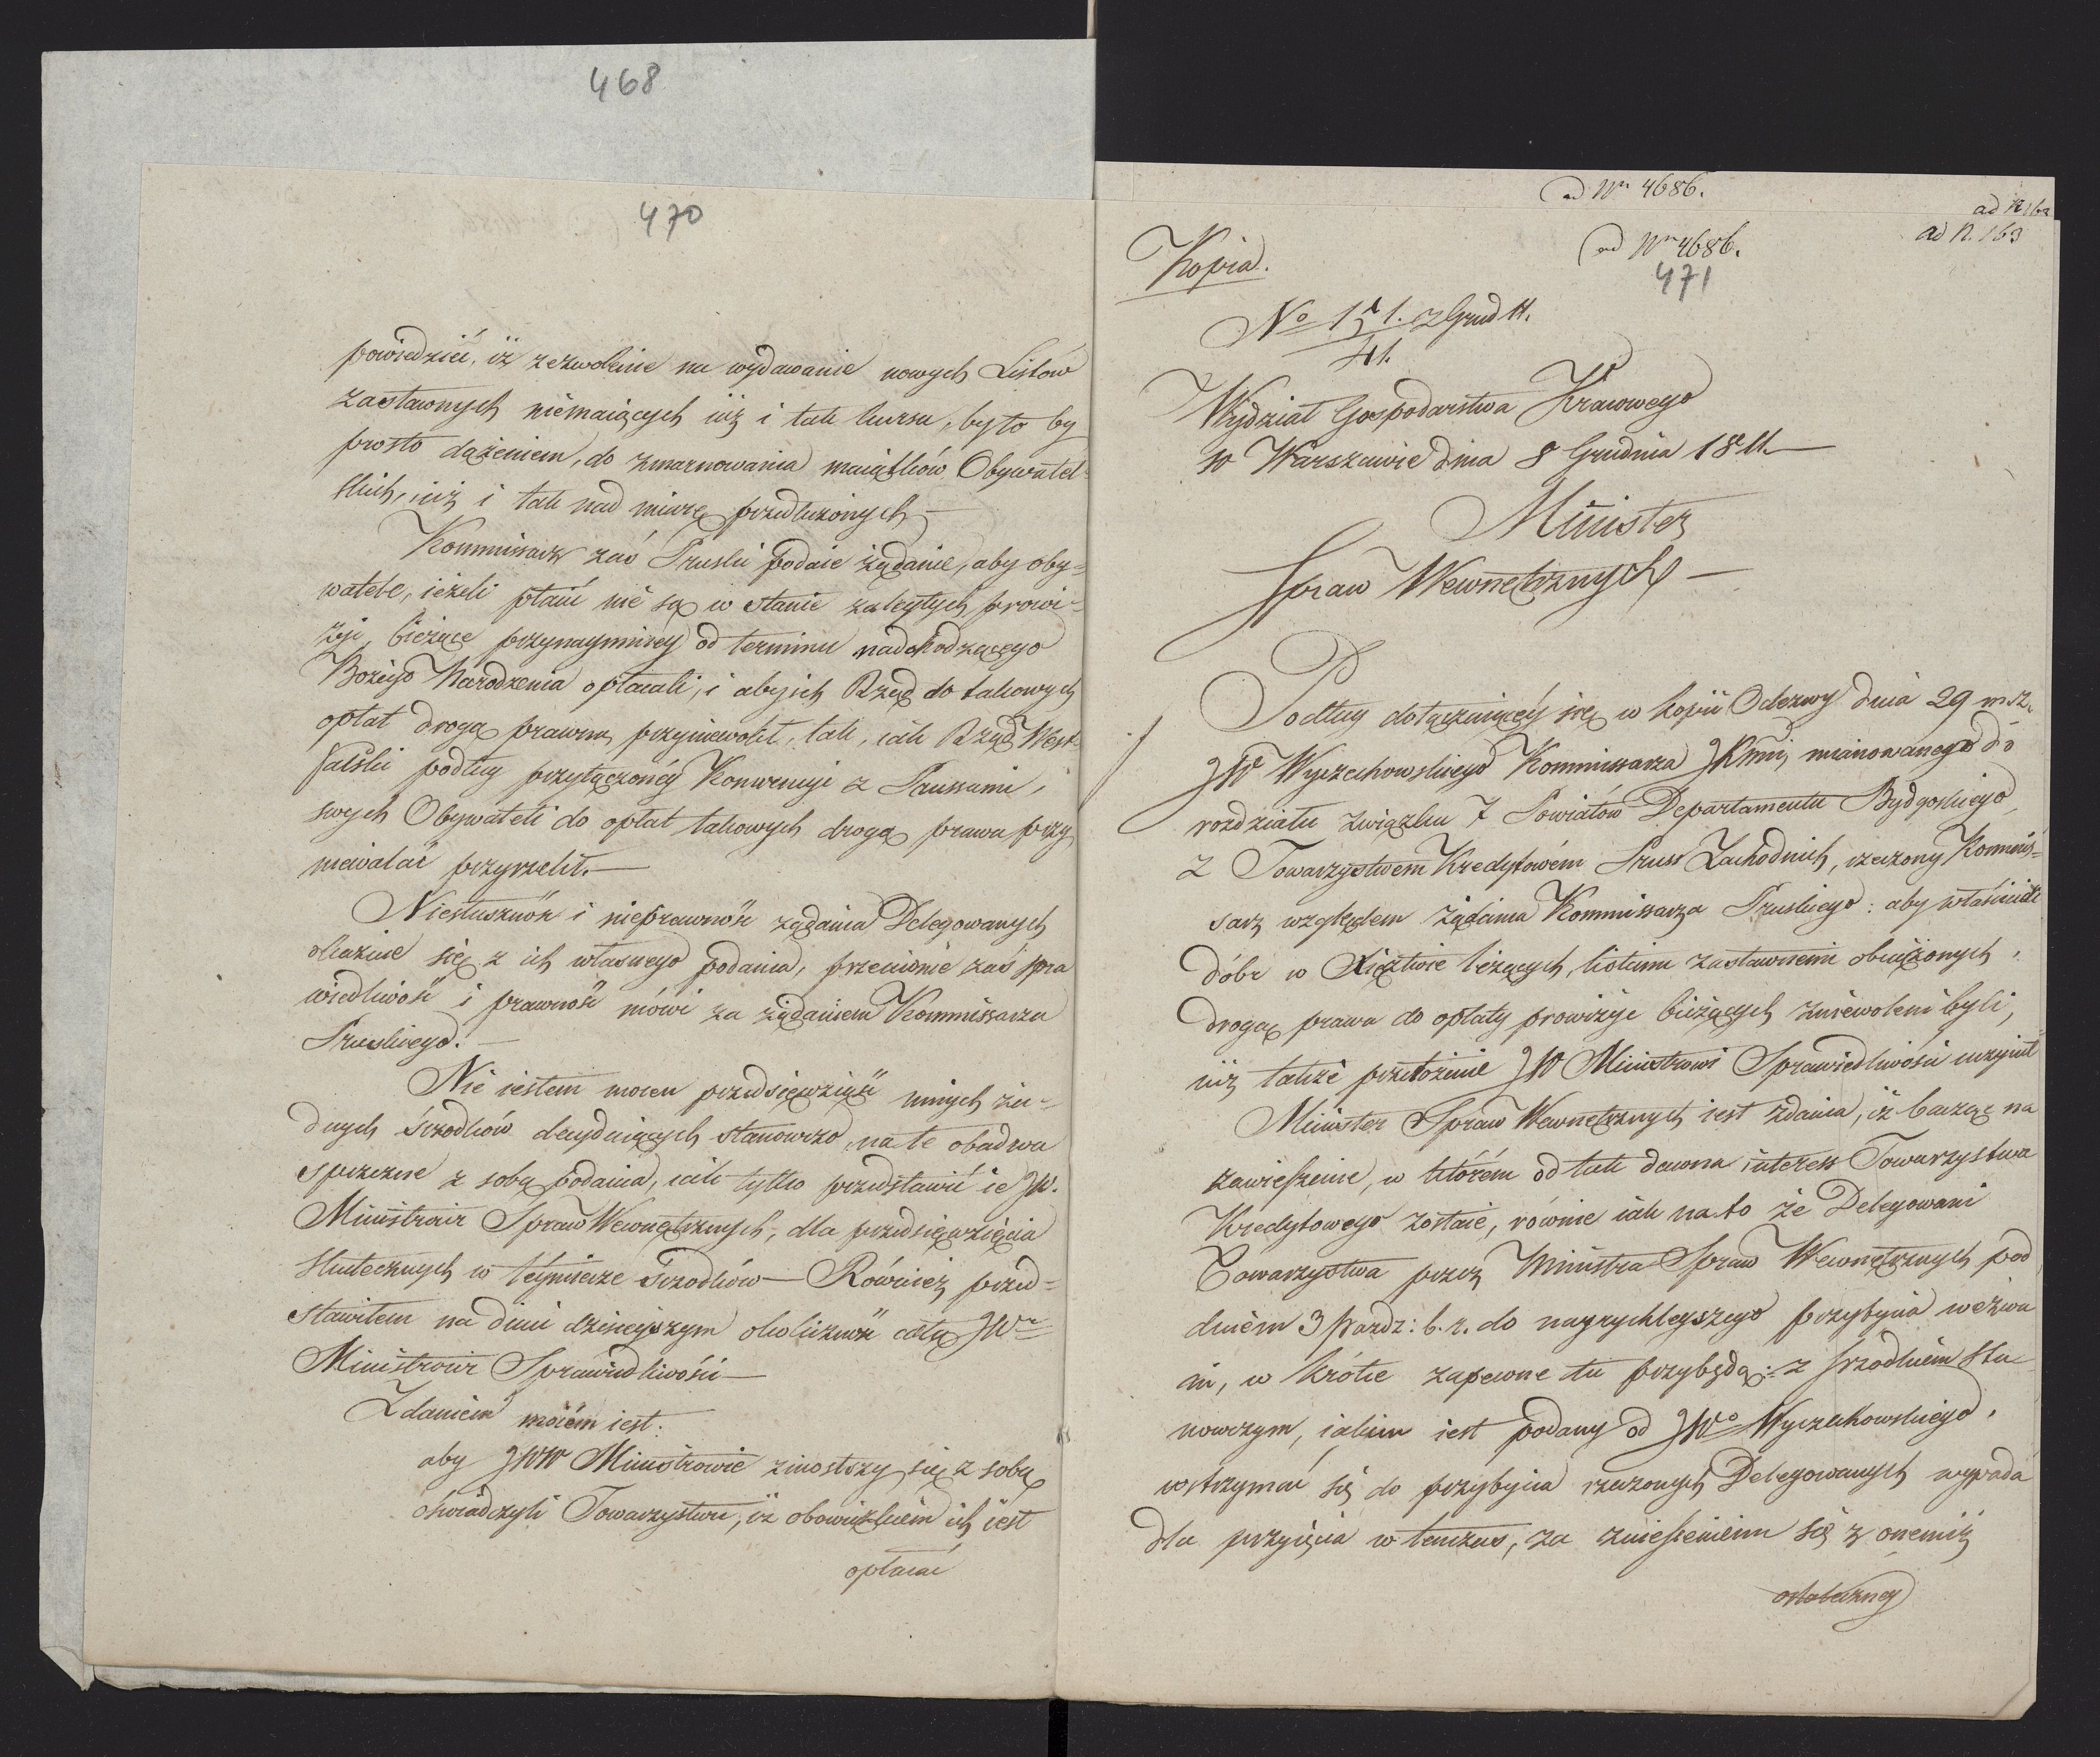 468
470
powiedzieć, iż zezwolenie na wydawanie nowych Listów
zastawnych niémaiących iuż i tak kursu, było by
prosto dążeniem, do zmarnowania maiątków Obywatel-
skich, iuż i tak nad miarę przedłużonych —
Kommissarz zaś Pruski podaie żądanie, aby oby-
watele, ieżeli płacić nie są w stanie zaległych prowi-
zyi, bieżące przynaymniey od terminu nadchodzącego
Bożego Narodzenia opłacali, i aby ich Rząd do takowych
opłat drogą prawną przyniewolił, tak, iak Rząd West-
falski podług przyłączoney Konwencyi z Prussami,
swych Obywateli do opłat takowych drogą prawa przy
niewalać przyrzekł. —
Niesłuszność i nieprawność żądania Delegowanych
okazuie się z ich własnego podania, przeciwnie zaś spra
wiedliwość i prawność mówi za żądaniem Kommissarza
Pruskiego. —
Nie iestem mocen przedsięwziąść innych ża-
dnych śrzodków decyduiących stanowczo na te obadwa
sprzeczne z sobą podania, iak tylko przedstawić ie JW.
Ministrowi Spraw Wewnętrznych, dla przedsięwzięcia
skutecznych w téymierze śrzodków — Również przed-
stawiłem na dniu dzisieyszym okoliczność całą JWu
Ministrowi Sprawiedliwości —
Zdaniem moiém iest:
aby JWW Ministrowie zniosłszy się z sobą
oświadczyli Towarzystwu, iż obowiązkiem ich iest
opłacać
ad Nrm 4686.
ad N 163
ad N. 163
ad Nrm 4686.
471
Kopia.
No 151. z Grud 11.
Wydział Gospodarstwa Kraiowego
w Warszawie dnia 8 Grudnia 1811 —
Minister
Spraw Wewnętrznych —
Podług dołączaiącéy się w kopii Odezwy dnia 29 m. z.
JW Wyczechowskiego Kommissarza JKMci mianowanego do
rozdziału związku 7 Powiatów Departamentu Bydgoskiego,
z Towarzystwem Kredytowém Pruss Zachodnich, rzeczony Kommis-
sarz względem żądania Kommissarza Pruskiego: aby właściciele
dóbr w Xięztwie leżących, listami zastawnemi obciążonych,
drogą prawa do opłaty prowizyi bieżących zniewoleni byli,
iuż także przełożenie JW Ministrowi Sprawiedliwości uczynił
Minister Spraw Wewnętrznych iest zdania, iż bacząc na
zawieszenie, w którém od tak dawna interess Towarzystwa
Kredytowego zostaie, równie iak na to że Delegowani
Towarzystwa przez Ministra Spraw Wewnętrznych pod
dniem 3 Pazdz: b. r. do nayrychleyszego przybycia wezwa
ni, w krótce zapewne tu przybędą: z śrzodkiem sta
nowczym, iakim iest podany od JWo Wyczechowskiego,
wstrzymać się do przybycia rzeczonych Delegowanych wypada
dla przyięcia w tenczas, za zniesieniem się z onemiż
ostateczney